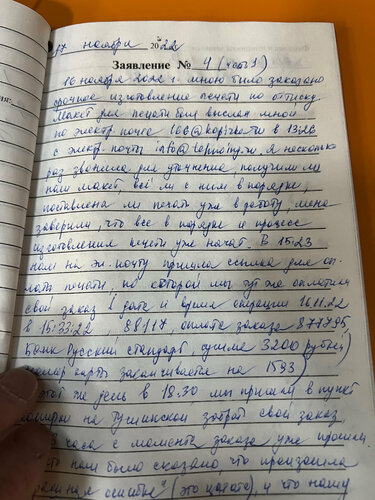 17 ноября 2022
Заявление № 4 (часть 1)
16 ноября 2022 г. мною было заказано
срочное изготовление печати по оттиску.
Макет для печати был выслан мной
по электр. почте в 13:26
с электр. почты я несколько
раз звонила для уточнения, получили ли
там макет, всё ли с ним в порядке,
поставлена ли печать уже в работу, меня
заверили, что все в порядке и процесс
изготовления печати уже начат. В 15:23
нам на эл. почту пришла ссылка для оп-
латы печати, по которой мы тут же оплатили
свой заказ (дата и время операции 16.11.22
в 15:33:22, 88117, оплата заказа 877795,
Банк Русский стандарт, сумма 3200 рублей)
номер карты заканчивается на 1593)
этот же день в 18:30 мы пришли в пункт
на Тушинской забрать свой заказ,
часа с момента заказа уже прошли.
нам было сказано, что произошла
ошибка" (это цитата) и что нашу